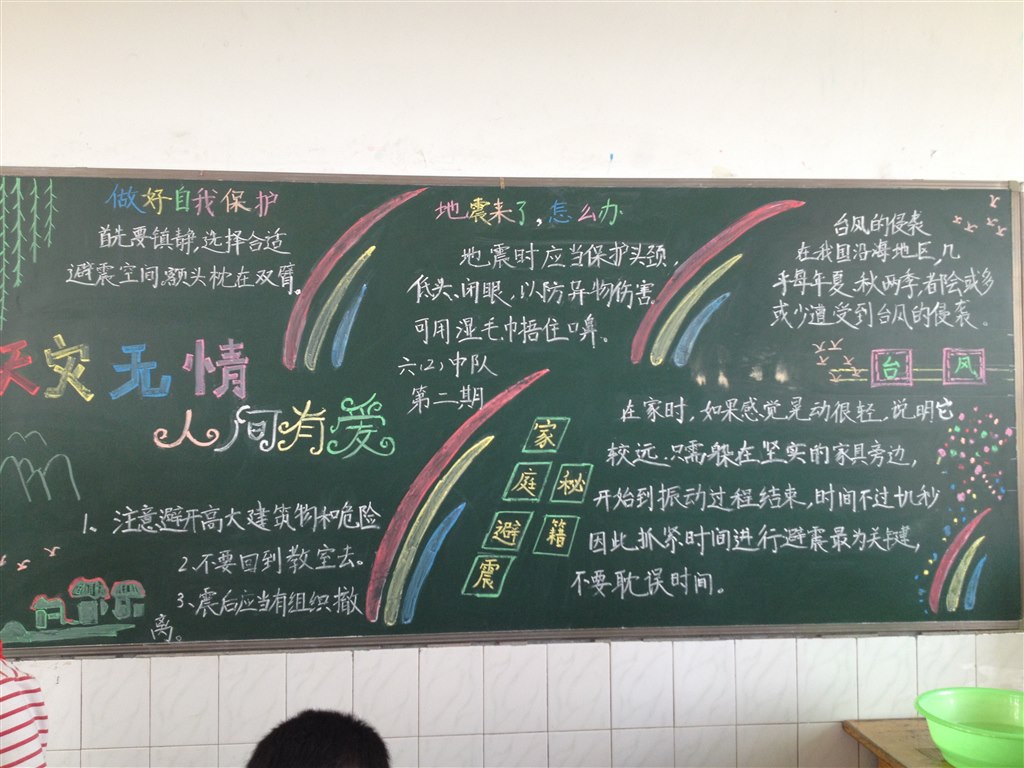 做好自我保护
首先要镇静,选择合适
避震空间,额头枕在双臂。
天灾无情
人间有爱
1、注意避开高大建筑物和危险
2.不要回到教室去。
3、震后应当有组织撤
离。
地震来了,怎么办
地震时应当保护头颈,
低头、闭眼,以防异物伤害。
可用湿毛巾捂住口鼻。
六(2)中队
第二期
家
庭
避
震
秘
籍
台风的侵袭
在我国沿海地区,几
乎每年夏、秋两季,都会或多
或少遭受到台风的侵袭。
台风
在家时,如果感觉晃动很轻,说明它
较远,只需躲在坚实的家具旁边,
开始到振动过程结束,时间不过
秒
因此,抓紧时间进行避震最为关键,
不要耽误时间。